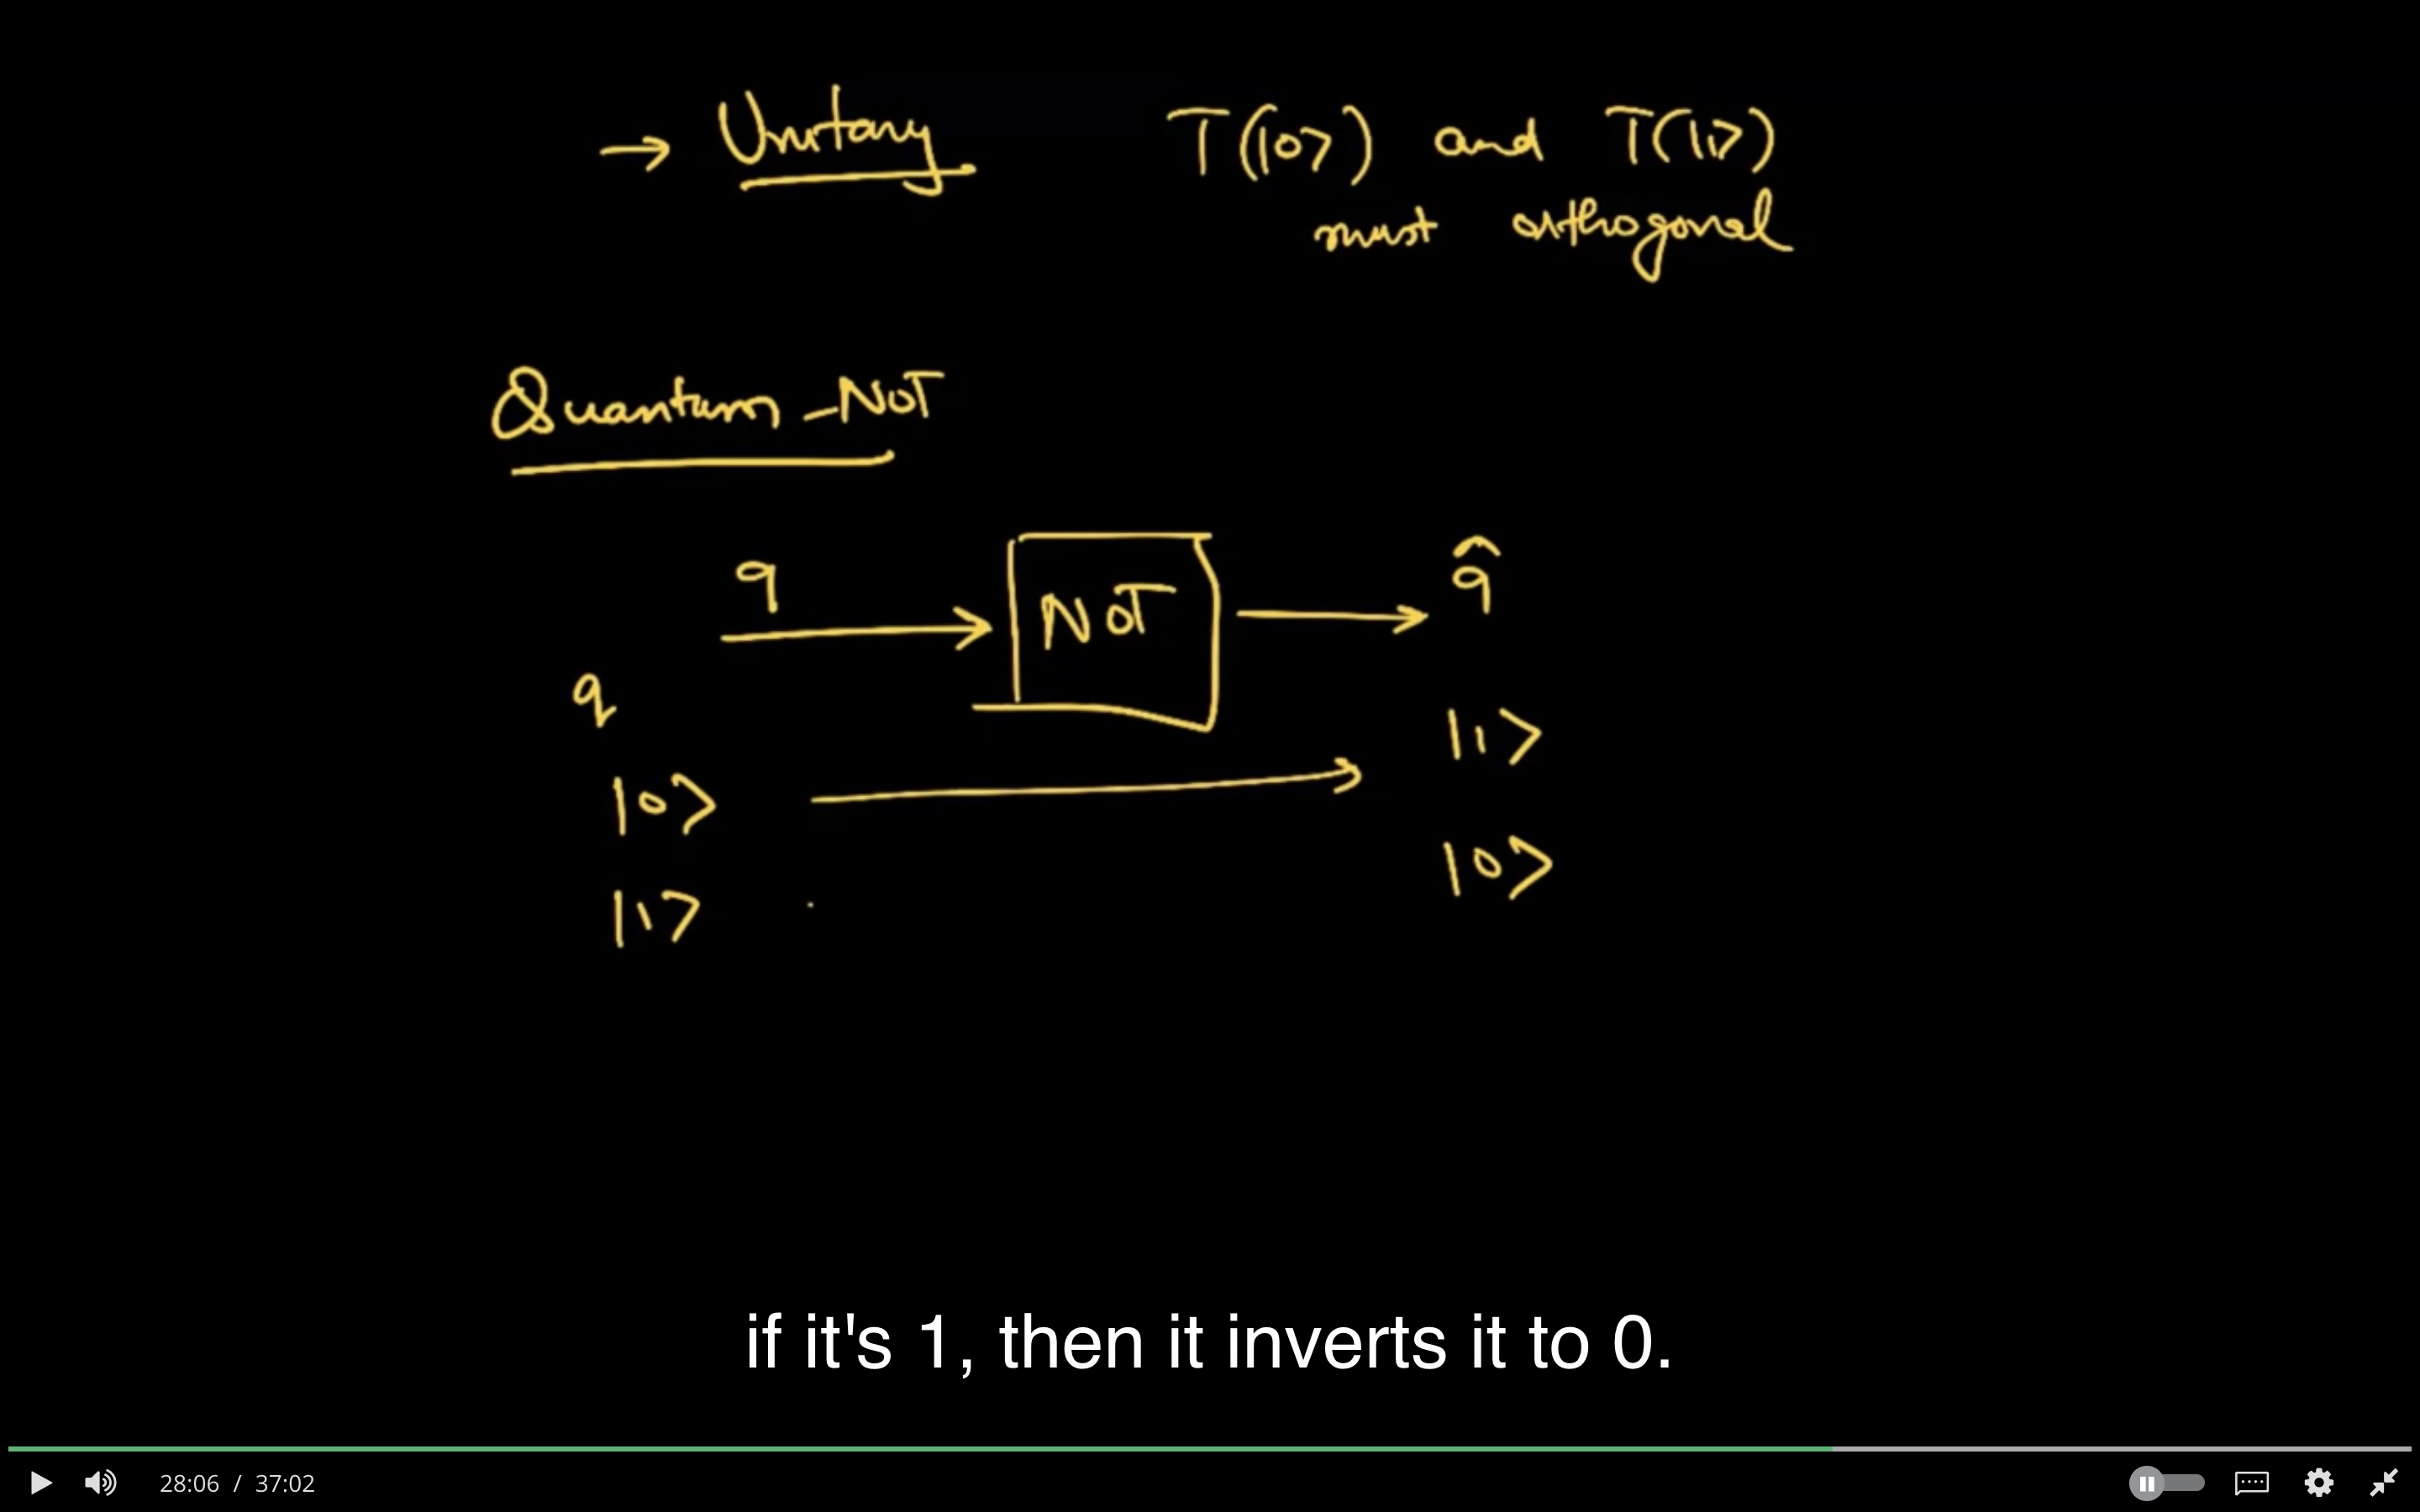 → Unitary T(|0⟩) and T(|1⟩)
must orthogonal
Quantum-NOT
q NOT q̂
q
|0⟩ → |1⟩
|1⟩ |0⟩
if it's 1, then it inverts it to 0.
28:06 / 37:02